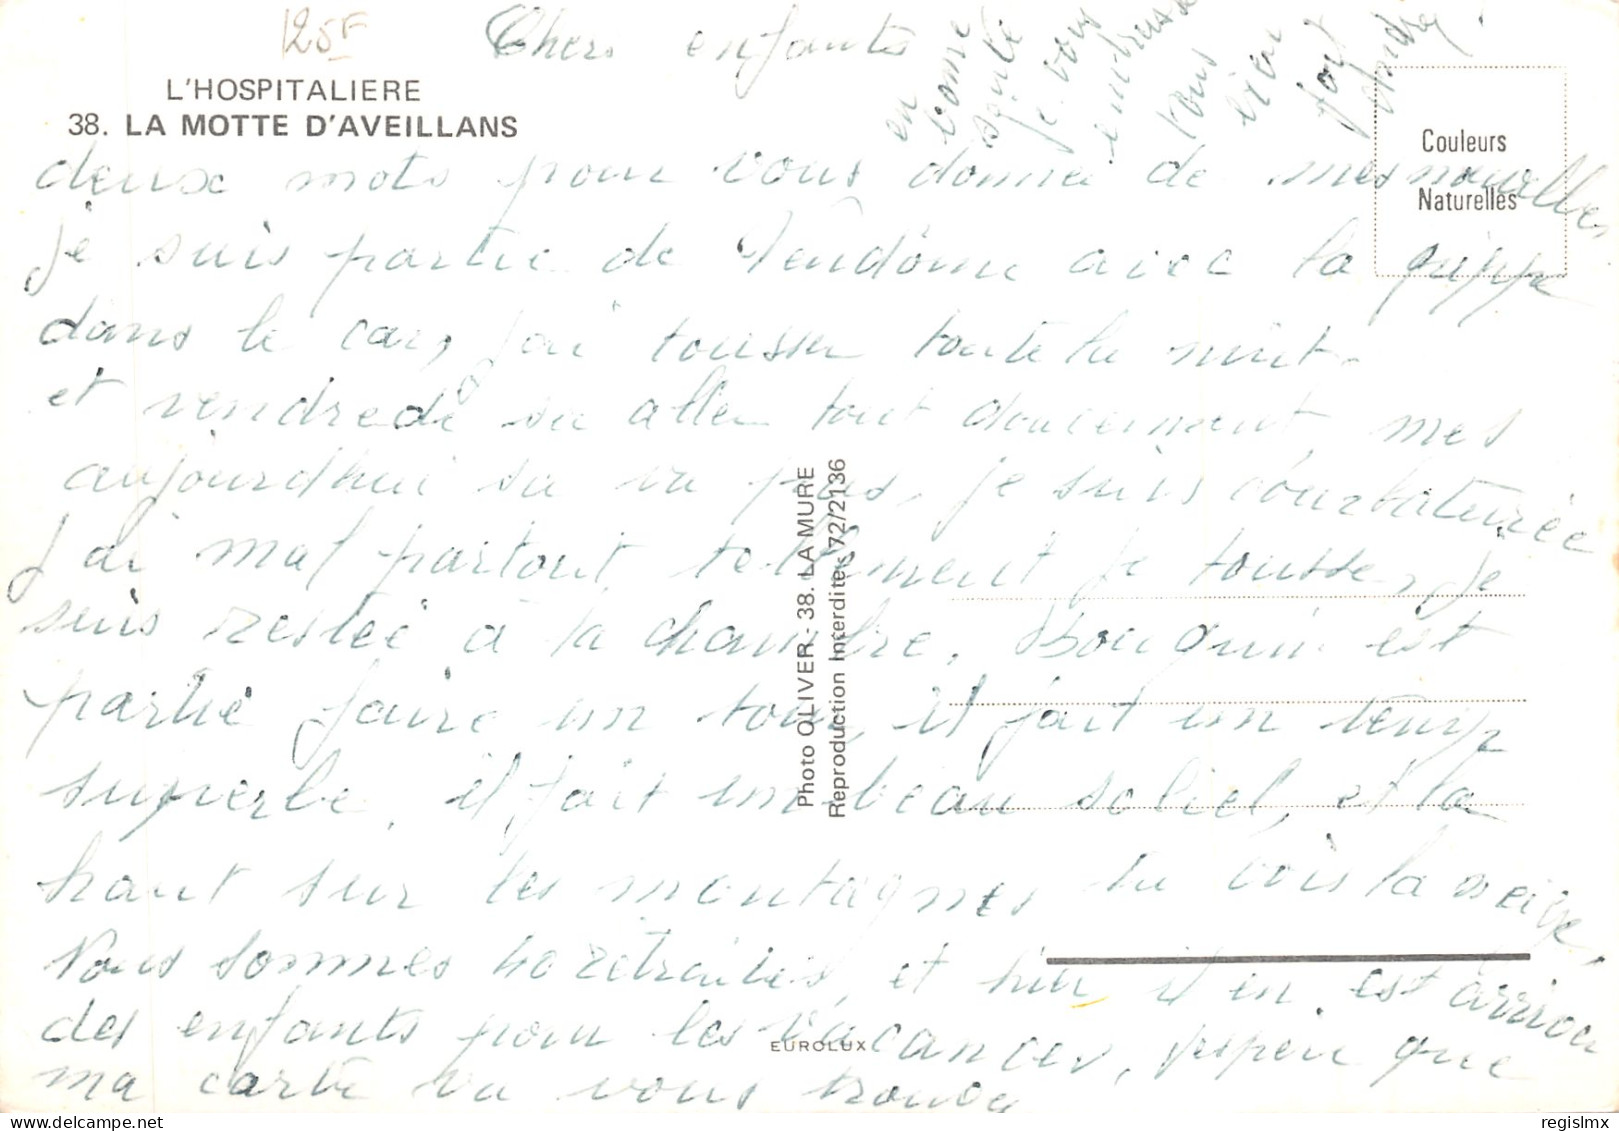 125F
Chers enfants
L'HOSPITALIERE
38. LA MOTTE D'AVEILLANS
Couleurs
Naturelles
deux mots pour vous donner de mes nouvelles
je suis partie de Vendôme avec la grippe
dans le car, j'ai tousser toute la nuit.
et vendredi sa aller tout doucement, mes
aujourd'hui sa va pas, je suis courbaturée
j'ai mal partout, tellement je tousse, je
suis restée à la chambre, est
partie faire un tour, il fait un temp
superbe, il fait un beau soleil, et la
haut sur les montagnes tu vois la neige,
Nous sommes 40 retraités, et hier il en est arriver
des enfants pour les vacances, j'esper que
ma carte va vous trouver
en
bonne
santé
je vous
embrasse
tous
bien
fort
Andrée
Photo OLIVER - 38. LA MURE
Reproduction Interdite s 72/2136
EUROLUX
regislmx